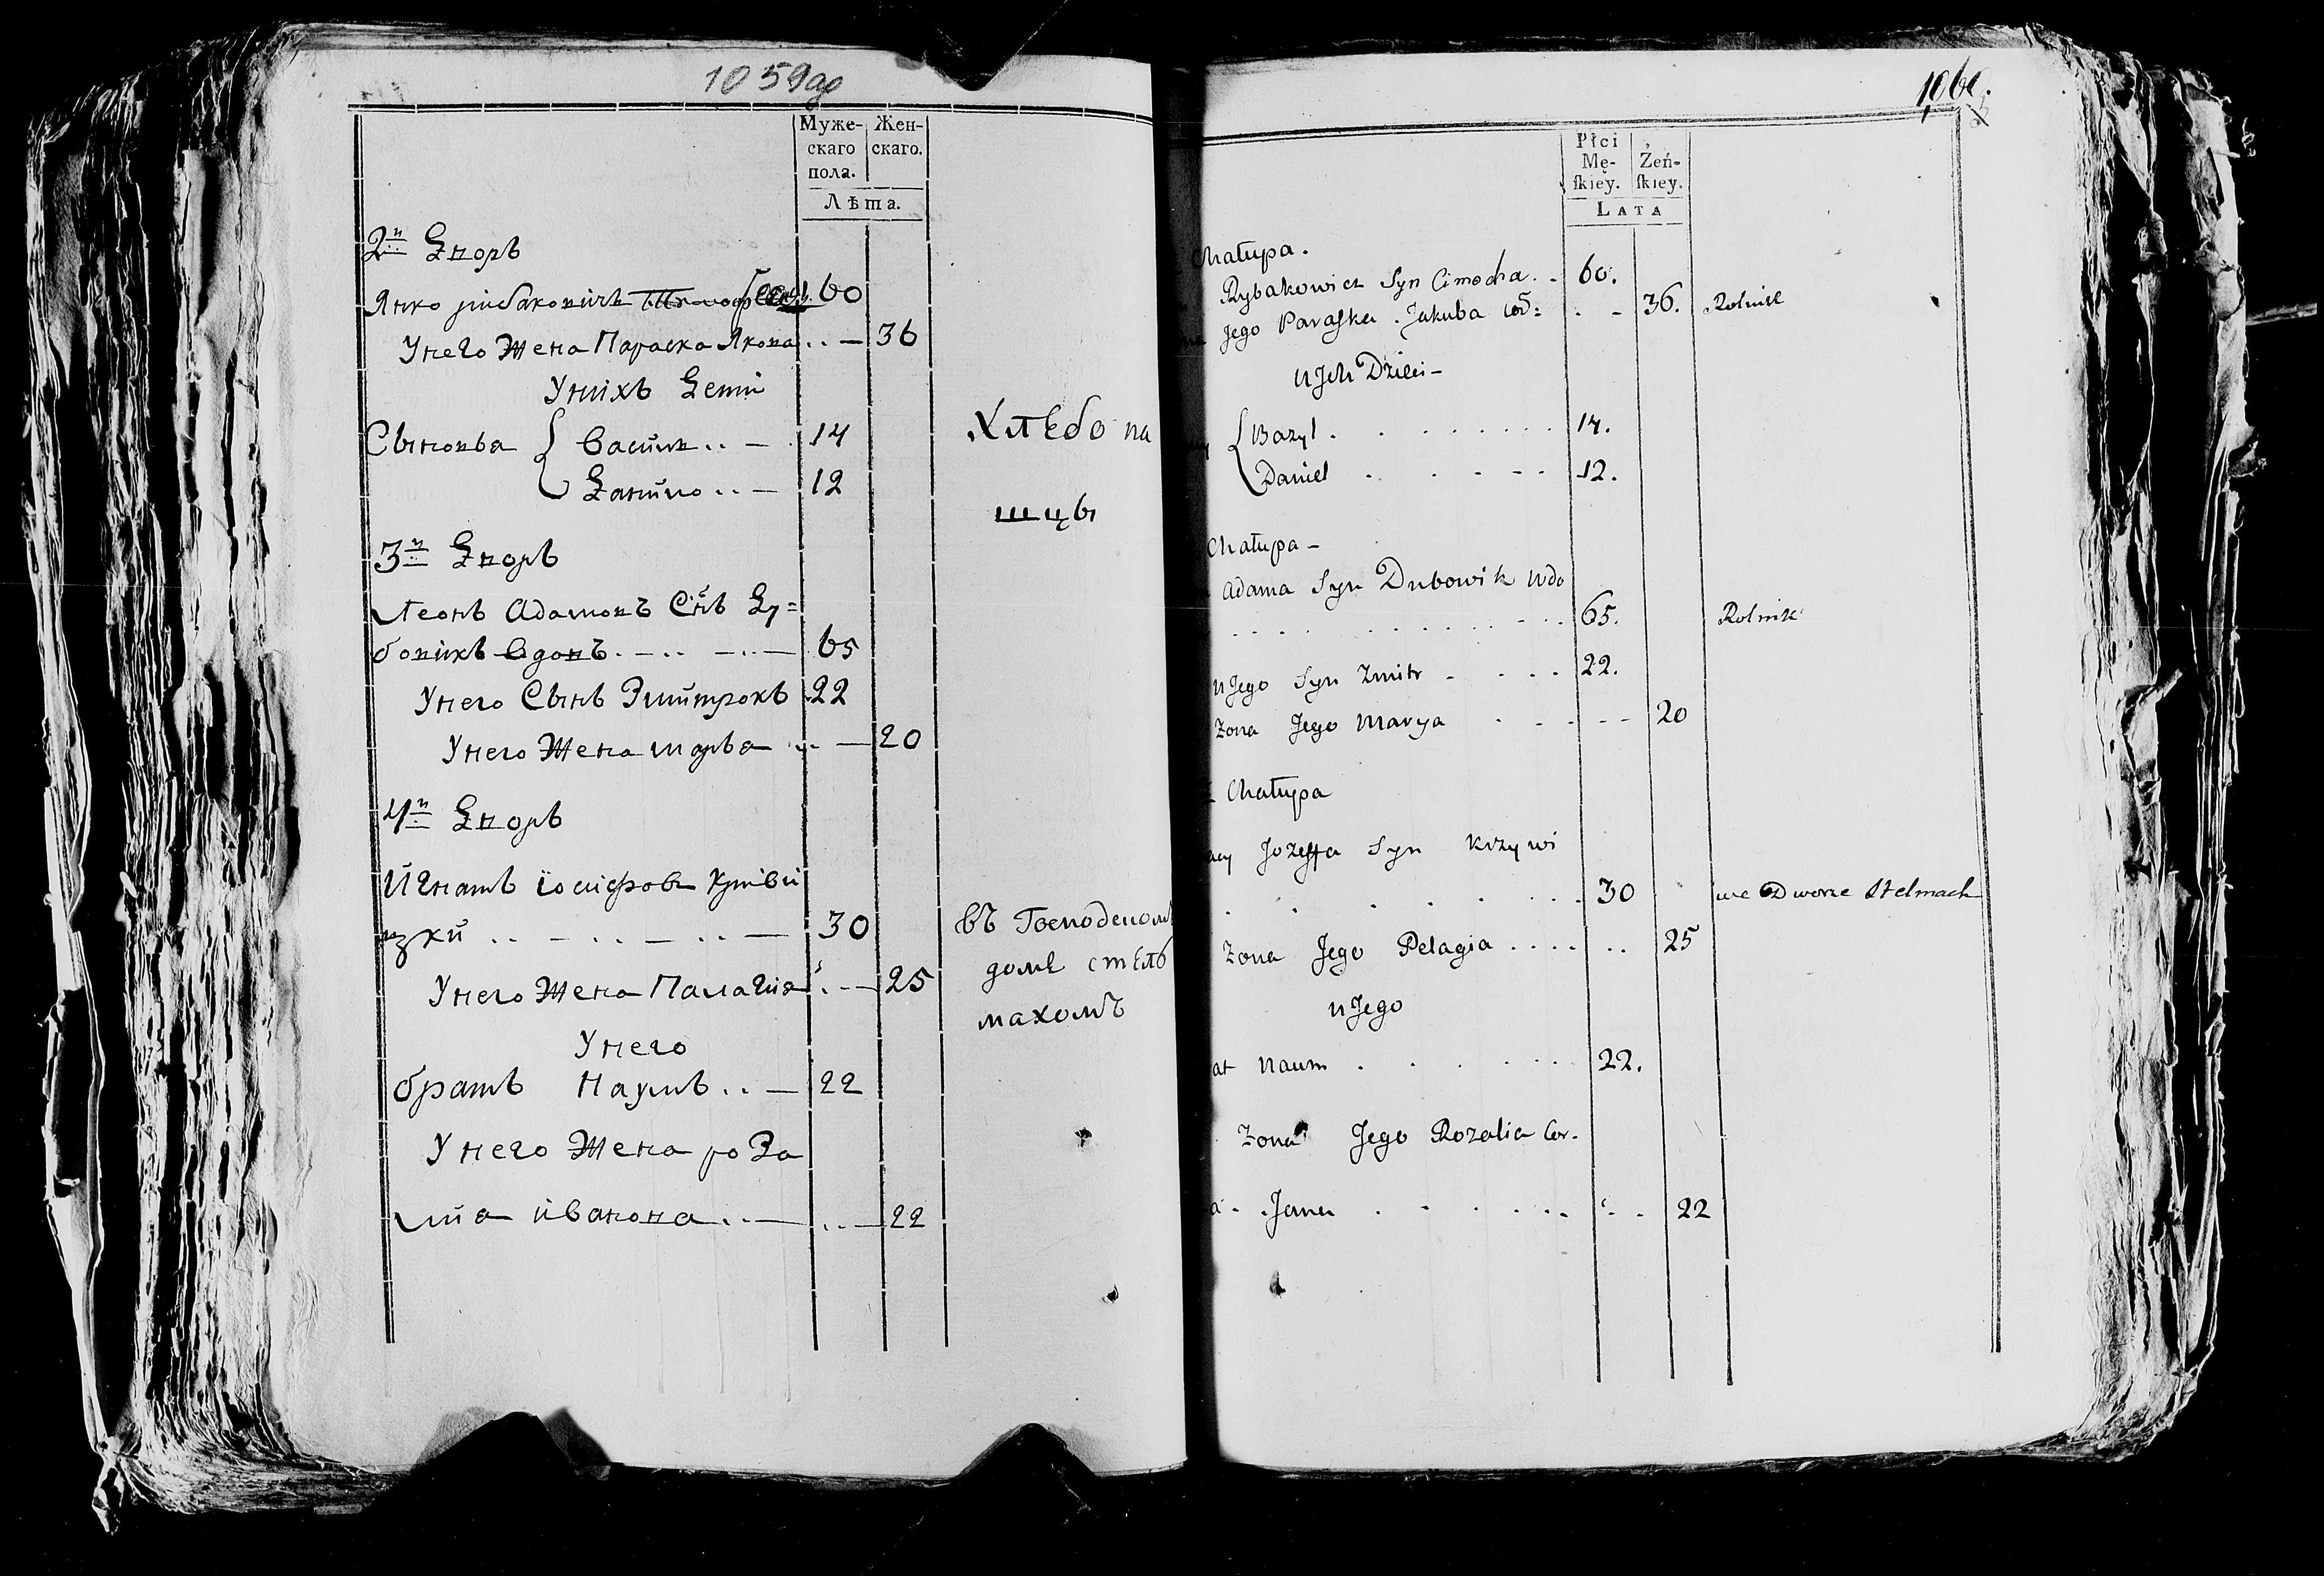 1059
Муже-
скаго
пола.
Жен-
скаго.
Лѣта.
2й Дворъ
Янко рибаковичъ 60
Унего Жена Параска Якова .. — 36
Унихъ Дети
Сыновья { Васили .. — 14
Данило .. — 12
Хлѣбо па
шцы
3й Дворъ
Леонъ Адамовъ Снъ Ду=
бовикъ Вдовъ . — .. — .. — 65
Унего Сынъ Змитрокъ 22
Унего Жена Марья .. — 20
4й Дворъ
Игнатъ іосифовъ Криви
цки .. — .. — .. — 30
Унего Жена Палагия .. — 25
въ Господском
доме стель
махомъ
Унего
братъ Наумъ .. — 22
Унего Жена роза
лия иванова .. — .. — 22
1060.
Płci
Mę-
ſkiey.
Żeń-
ſkiey.
LATA
Chałupa.
Rybakowicz Syn Cimocha . . 60.
Jego Paraska . Jakuba cor: . - 36. Rolnik
u Jch Dzieci -
{ Bazyl . . . . . . . . 14.
Daniel . . . - - . 12.
Chałupa -
Adama Syn Dubowik wdo
. . . . . . . . . . . 65. Rolnik
u Jego Syn Zmitr . . . . 22.
Zona Jego Marya . . . - - 20
Chałupa
Jozeffa Syn Krzywi
. . . . . . . . 30 we Dworze Stelmach
Zona Jego Pelagia . . . . .. 25
u Jego
at Naum . . . . . . 22.
Zona Jego Rozalia Cor.
a . . Jana . . . . . . . . 22